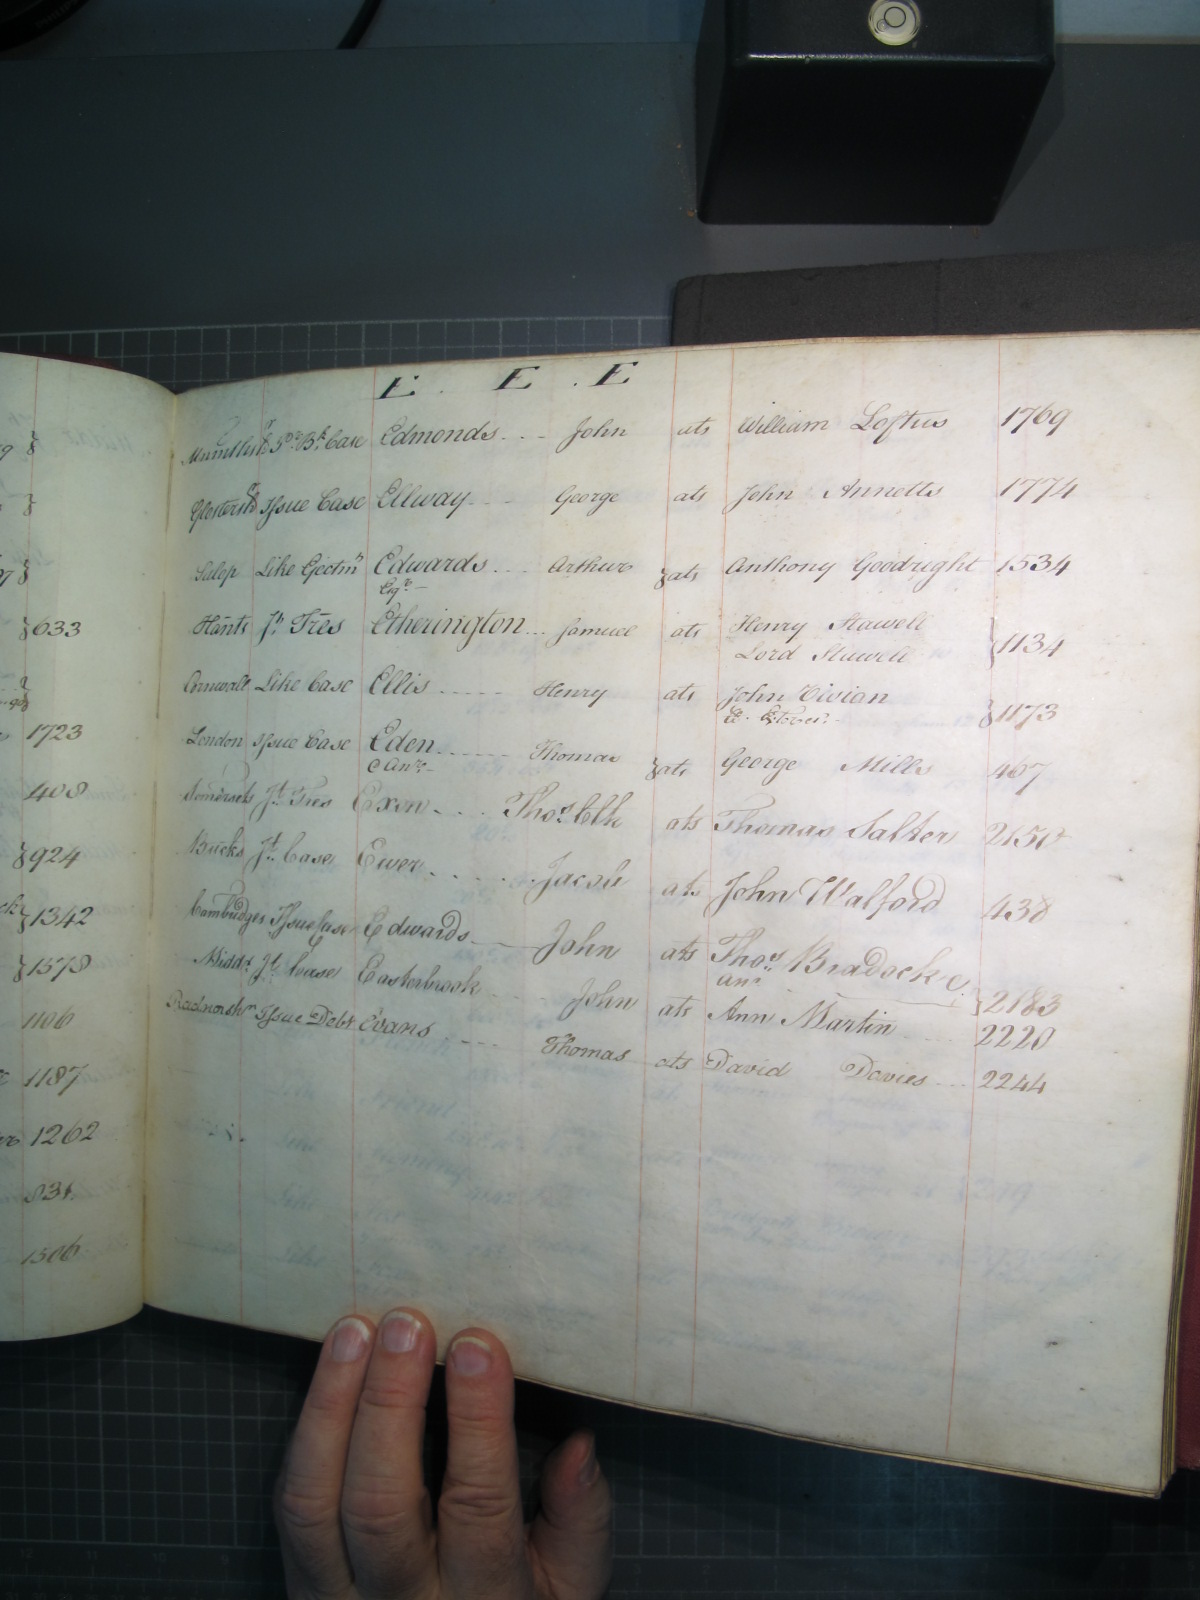 E . E . E
Monmouthsh 3d Bk Case Edmonds John ats William Loftus 1769
Glostersh Issue Case Ellway George ats John Annetts 1774
Salop Like Ejectmt Edwards Arthur ats Anthony Goodright 1534
Esqr
Hants Jt Tres Etherington Samuel ats Henry Stawell
Lord Stawell } 1134
Cornwall Like Case Ellis Henry ats John Vivian
1173
London Issue Case Eden Thomas ats George Mills 467
& Anr
Somersets Jt Tres Exon Thos Elh ats Thomas Salter
Bucks Jt Case Ewer Jacob ats John Walford 438
Cambridges Issue Case Edwards John ats Thos Bradock &
anr } 2183
Middx Jt Case Easterbrook John ats Ann Martin 2220
Radnorshr Issue Debt Evans Thomas ats David Davies 2244
} 633
1723
408
} 924
} 1342
} 1578
1106
1187
1262
831
1306